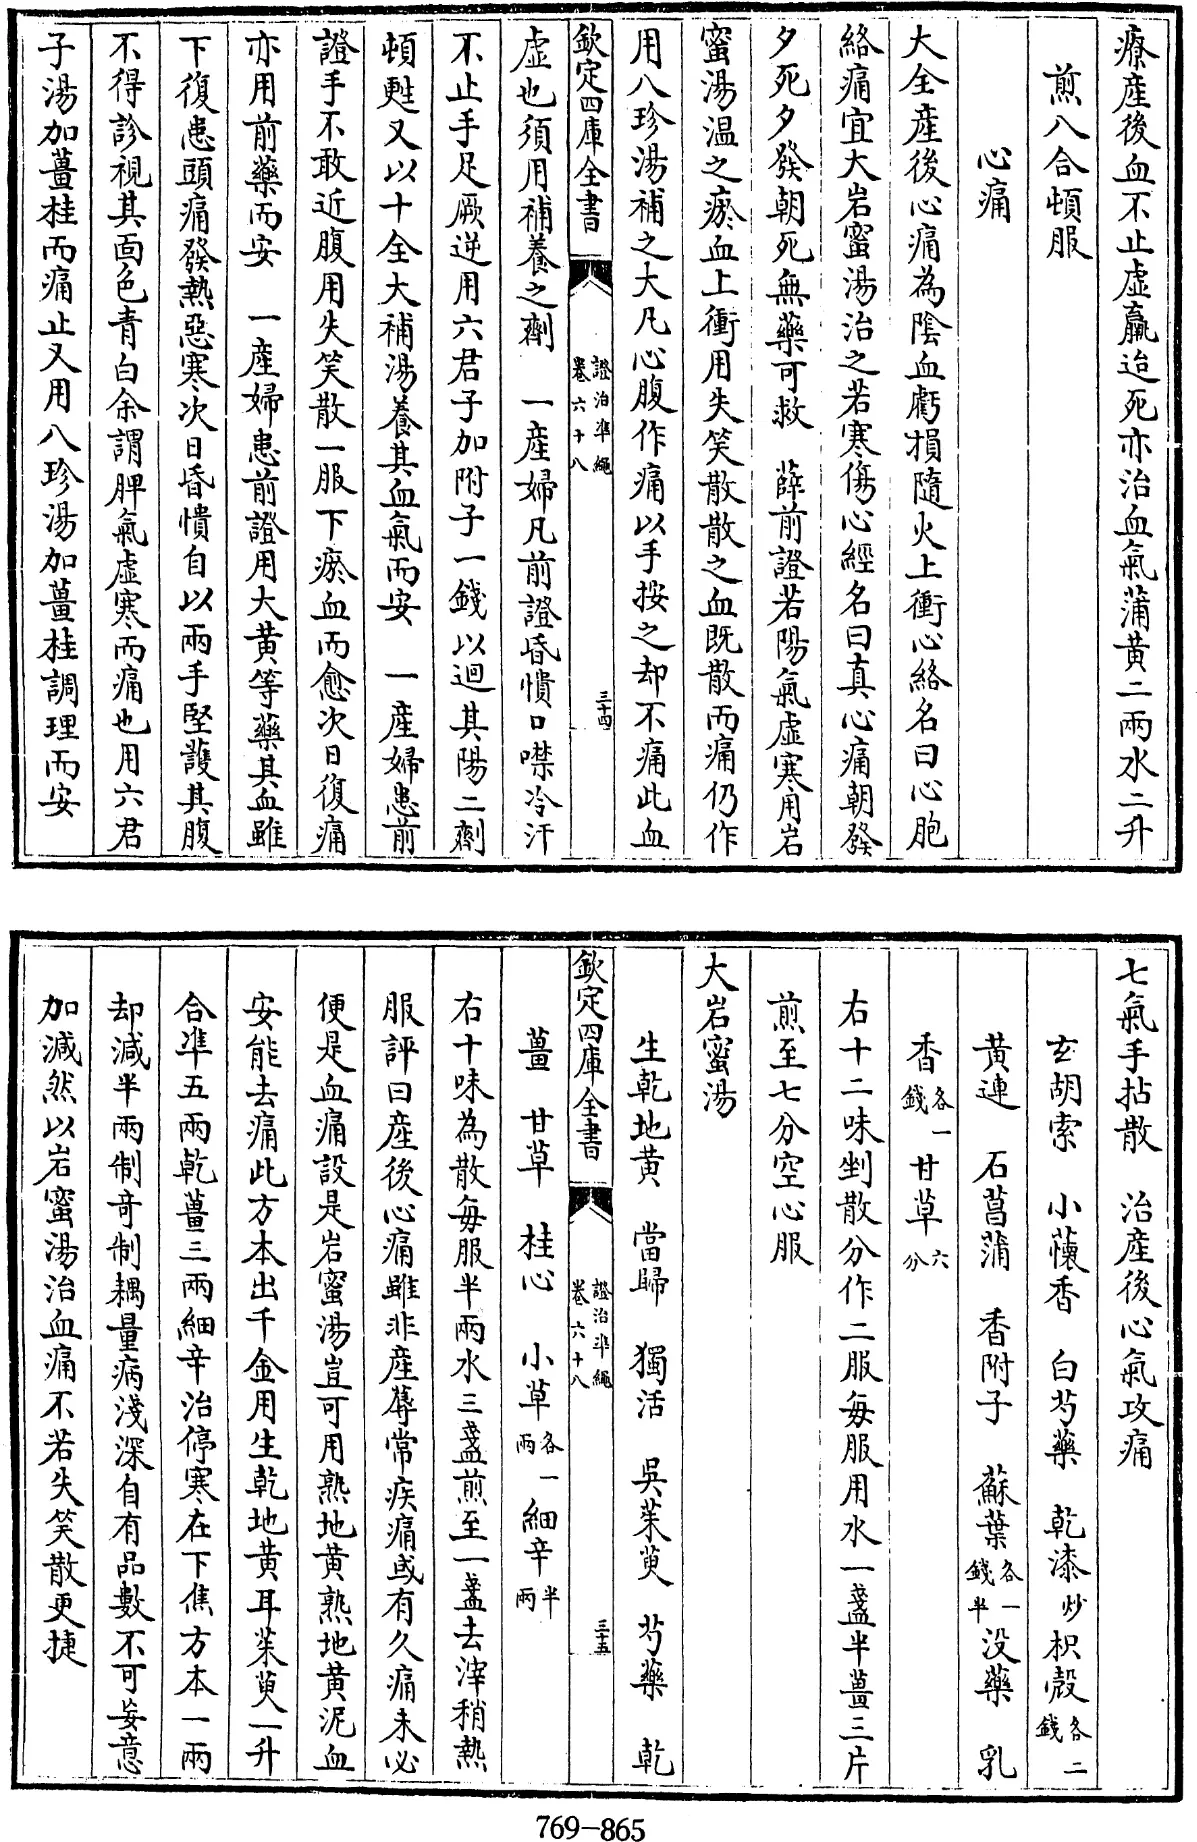 療產後血不止虛羸迨死亦治血氣蒲黄二兩水二升
煎八合頓服
心痛
大全產後心痛為陰血虧損隨火上衝心絡名曰心胞
絡痛宜大岩蜜湯治之若寒傷心經名曰真心痛朝發
夕死夕發朝死無藥可救　薛前證若陽氣虛寒用岩
蜜湯温之瘀血上衝用失笑散散之血既散而痛仍作
用八珍湯補之大凡心腹作痛以手按之却不痛此血
欽定四庫全書　證治凖繩卷六十八　三十四
虛也須用補養之劑　一產婦凡前證昏憒口噤冷汗
不止手足厥逆用六君子加附子一錢以迴其陽二劑
頓甦又以十全大補湯養其血氣而安　一產婦患前
證手不敢近腹用失笑散一服下瘀血而愈次日復痛
亦用前藥而安　一產婦患前證用大黄等藥其血雖
下復患頭痛發熱惡寒次日昏憒自以兩手堅護其腹
不得診視其面色青白余謂脾氣虛寒而痛也用六君
子湯加薑桂而痛止又用八珍湯加薑桂調理而安
七氣手拈散　治產後心氣攻痛
玄胡索　小懷香　白芍藥　乾漆炒枳殼各二錢
黄連　石菖蒲　香附子　蘇葉各一錢半没藥　乳
香各一錢甘草六分
右十二味剉散分作二服每服用水一盞半薑三片
煎至七分空心服
大岩蜜湯
生乾地黄　當歸　獨活　吳茱萸　芍藥　乾
欽定四庫全書　證治凖繩卷六十八　三十五
薑　甘草　桂心　小草各一兩細辛半兩
右十味為散每服半兩水三盞煎至一盞去滓稍熱
服評曰產後心痛雖非產蓐常疾痛或有久痛未必
便是血痛設是岩蜜湯豈可用熟地黄熟地黄泥血
安能去痛此方本出千金用生乾地黄耳茱萸一升
合凖五兩乾薑三兩細辛治停寒在下焦方本一兩
却減半兩制奇制耦量病淺深自有品數不可妄意
加減然以岩蜜湯治血痛不若失笑散更捷
769-865